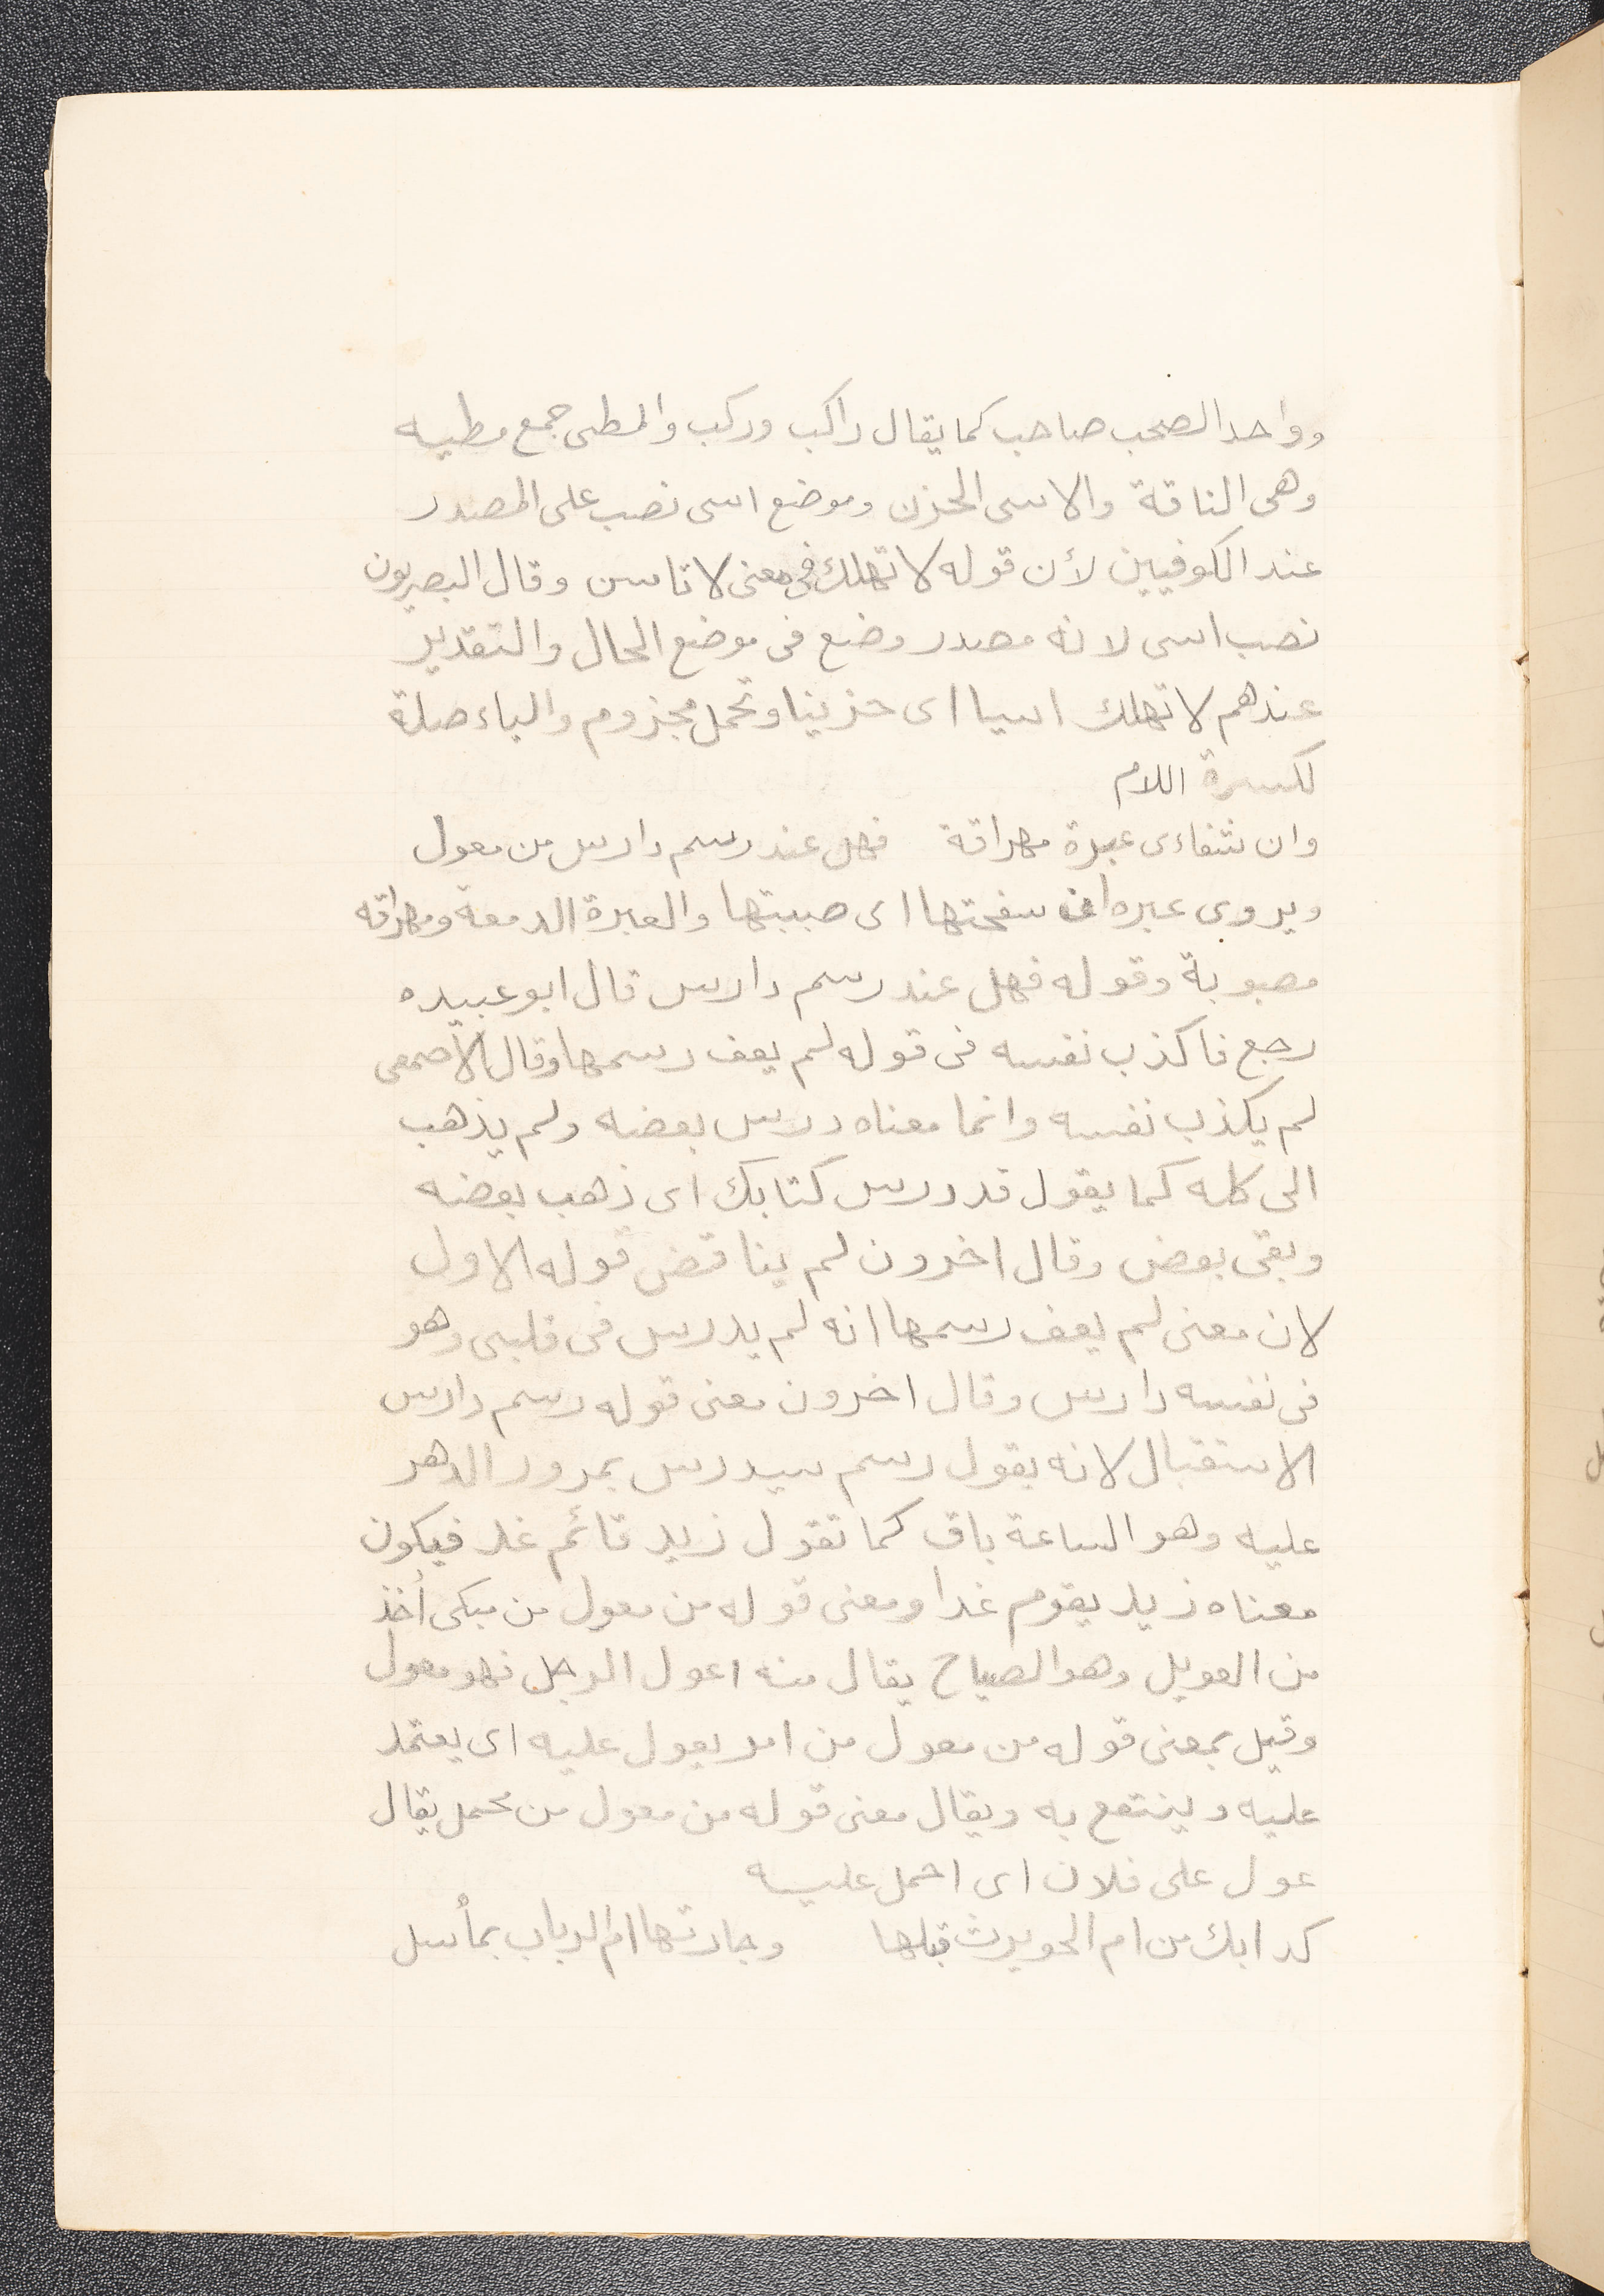 وواحد الصحب صاحب كما يقال راكب وركب والمطى جمع مطيه
وهى الناقة والاسى الحزن وموضع اسى نصب على المصدر
عند الكوفيين لأن قوله لا تهلك فى معنى لا تاسن وقال البصريون
نصب اسى لانه مصدر وضع فى موضع الحال والتقدير
عندهم لا تهلك اسيا اى حزينا وتحمل مجزوم والياء صلة
لكسرة اللام
وان شفاءى عبرة مهراقة فهل عند رسم دارس من معول
ويروى عبره ان سفحتها اى صببتها والعبرة الدمعة ومهراقه
مصبوبة وقوله فهل عند رسم دارس قال ابو عبيده
رجع فاكذب نفسه فى قوله لم يعف رسمها وقال الأصمعى
لم يكذب نفسه وانما معناه درس بعضه ولم يذهب
الى كله كما يقول قد درس كتابك اى ذهب بعضه
وبقى بعض وقال اخرون لم يناقض قوله الاول
لان معنى لم يعف رسمها انه لم يدرس فى قلبى وهو
فى نفسه دارس وقال اخرون معنى قوله رسم دارس
الاستقبال لانه يقول رسم سيدرس بمرور الدهر
عليه وهو الساعة باق كما تقول زيد قائم غد فيكون
معناه زيد يقوم غدا ومعنى قوله من معول من مبكى أخذ
من العويل وهو الصياح يقال منه اعول الرجل فهو معول
وقيل بمعنى قوله من معول من امر يعول عليه اى يعتمد
عليه وينتفع به ويقال معنى قوله من معول من محمل يقال
عول على فلان اى احمل عليه
كدابك من ام الحويرث قبلها وجارتها ام الرباب بمأسل